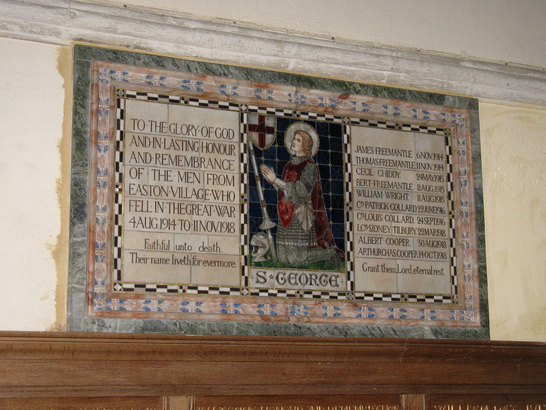 TO THE GLORY OF GOD
AND IN LASTING HONOUR
AND REMEMBRANCE
OF THE MEN FROM
EASTON VILLAGE WHO
FELL IN THE GREAT WAR
4 AUG 1914 TO 11 NOV 1918
Faithful unto death.
Their name liveth for evermore.
S GEORGE
JAMES FREEMANTLE 6 NOV 1914
THOMAS FREEMANTLE 11 NOV 1914
CECIL CHIDDY MAY 1915
BERT FREEMANTLE AUG 1915
WILLIAM WRIGHT AUG 1915
PATRICK COLLARD JUNE 1916
LOUIS COLLARD 24 SEP 1916
SIDNEY TILBURY MAR 1918
ALBERT COOPER 30 AUG 1918
ARTHUR CHAS COOPER OCT 1918
Grant them, Lord, eternal rest.
AND REMEMBRANCE